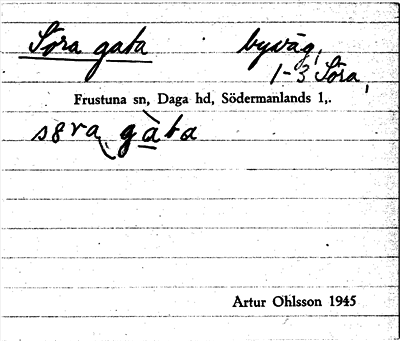 Söra gata byväg,
1-3 Söra,
Frustuna sn, Daga hd, Södermanlands l,.
söra gàta
Artur Ohlsson 1945